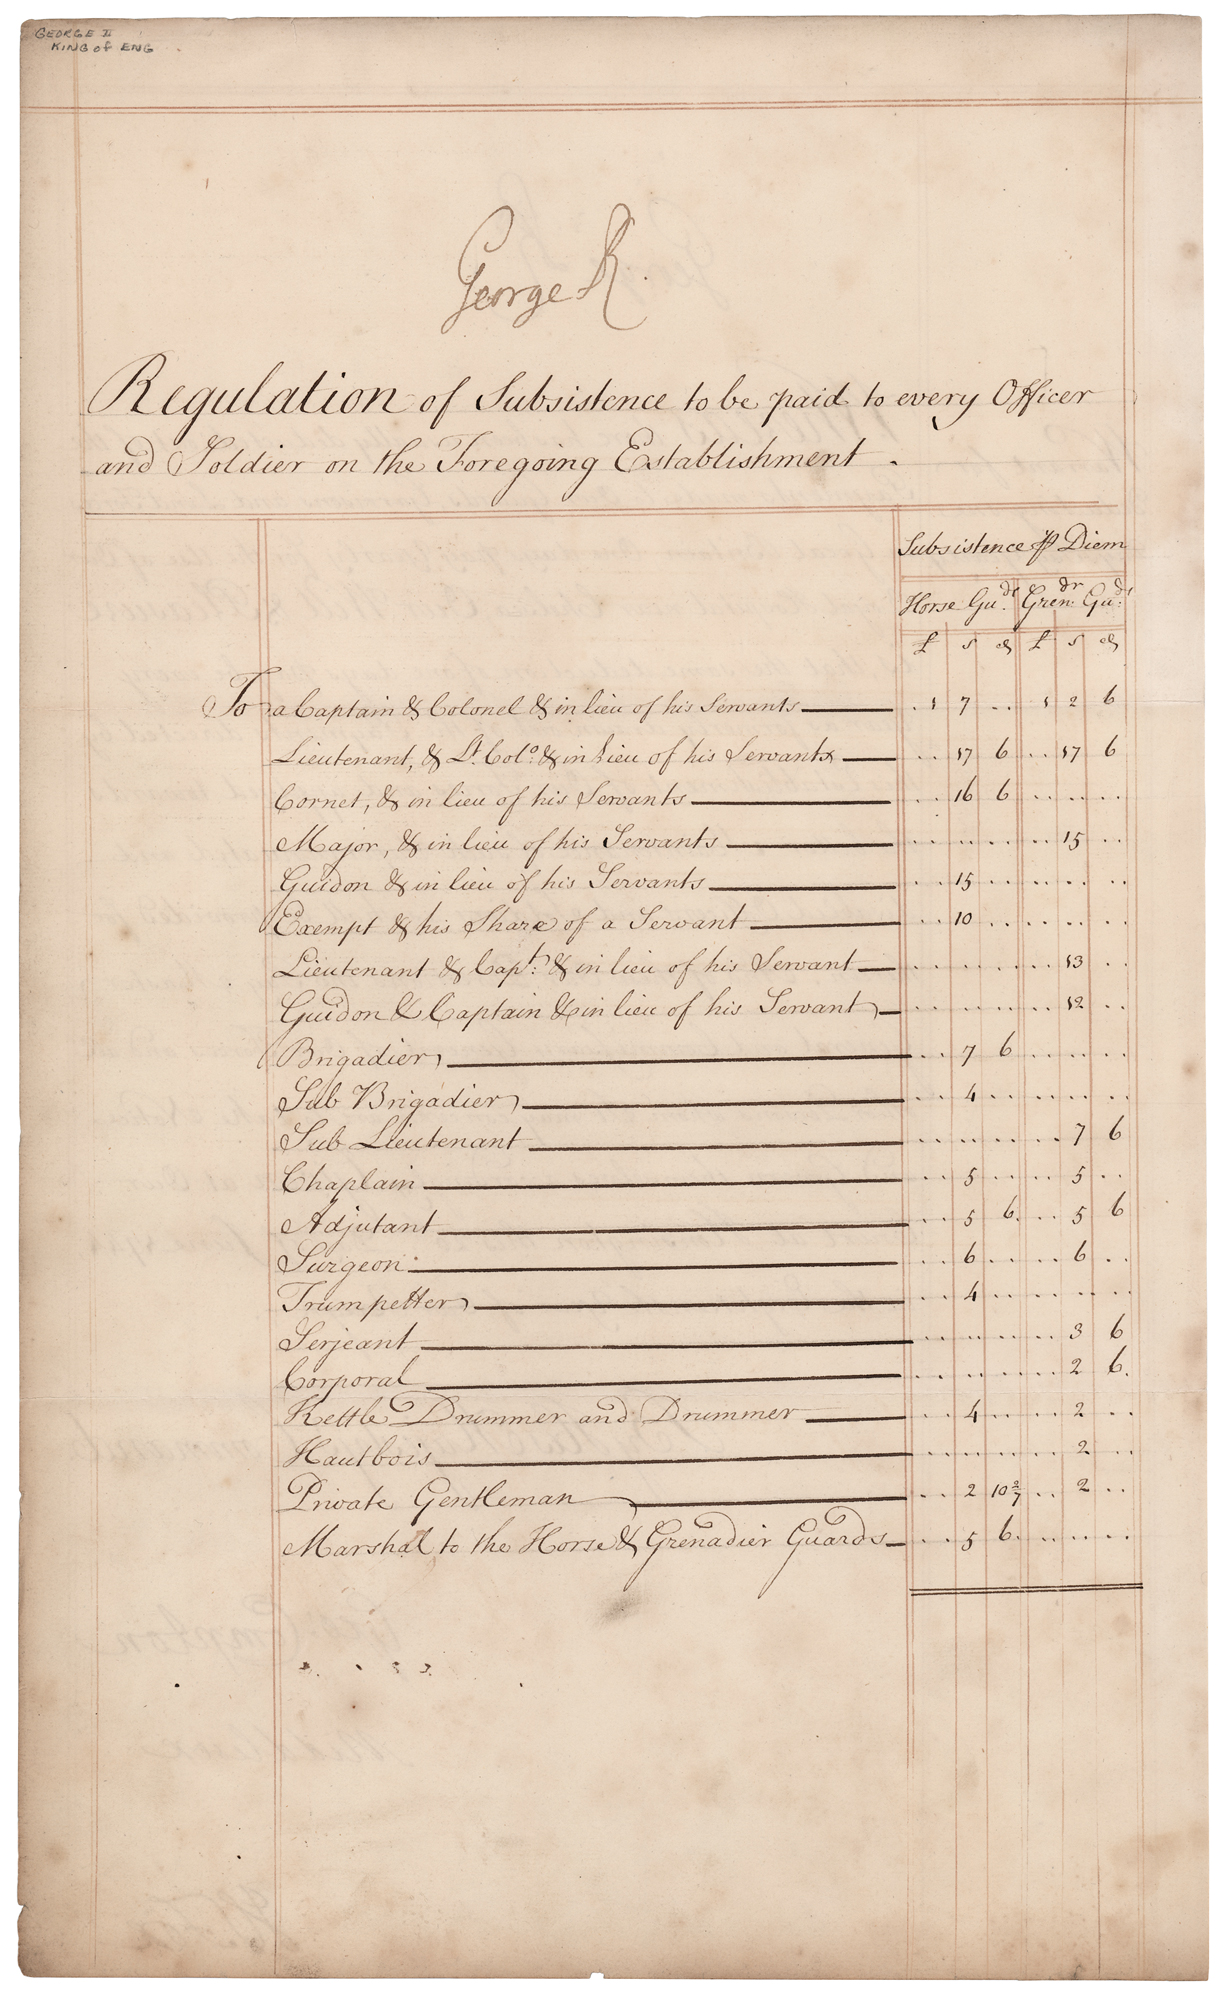 GEORGE II
KING of ENG
George R.
Regulation of Subsistence to be paid to every Officer
and Soldier on the Foregoing Establishment .
Subsistence ⅌ Diem
Horse Gu.ds Gren.dr Gu.ds
£ s d £ s d
To a Captain & Colonel & in lieu of his Servants 1 7 .. 1 2 6
Lieutenant, & Lt. Colo. & in lieu of his Servants .. 17 6 .. 17 6
Cornet, & in lieu of his Servants .. 16 6 .. .. ..
Major, & in lieu of his Servants .. .. .. .. 15 ..
Guidon & in lieu of his Servants .. 15 .. .. .. ..
Exempt & his Share of a Servant .. 10 .. .. .. ..
Lieutenant & Capt: & in lieu of his Servant .. .. .. .. 13 ..
Guidon & Captain & in lieu of his Servant .. .. .. .. 12 ..
Brigadier .. 7 6 .. .. ..
Sub Brigadier .. 4 .. .. .. ..
Sub Lieutenant .. .. .. .. 7 6
Chaplain .. 5 .. .. 5 ..
Adjutant .. 5 6. .. 5 6
Surgeon .. 6 .. .. 6 ..
Trumpetter .. 4 .. .. .. ..
Serjeant .. .. .. .. 3 6
Corporal .. .. .. .. 2 6.
Kettle Drummer and Drummer .. 4 .. .. 2 ..
Hautbois .. .. .. .. 2 ..
Private Gentleman .. 2 10 2/7 .. 2 ..
Marshal to the Horse & Grenadier Guards .. 5 6. .. .. ..